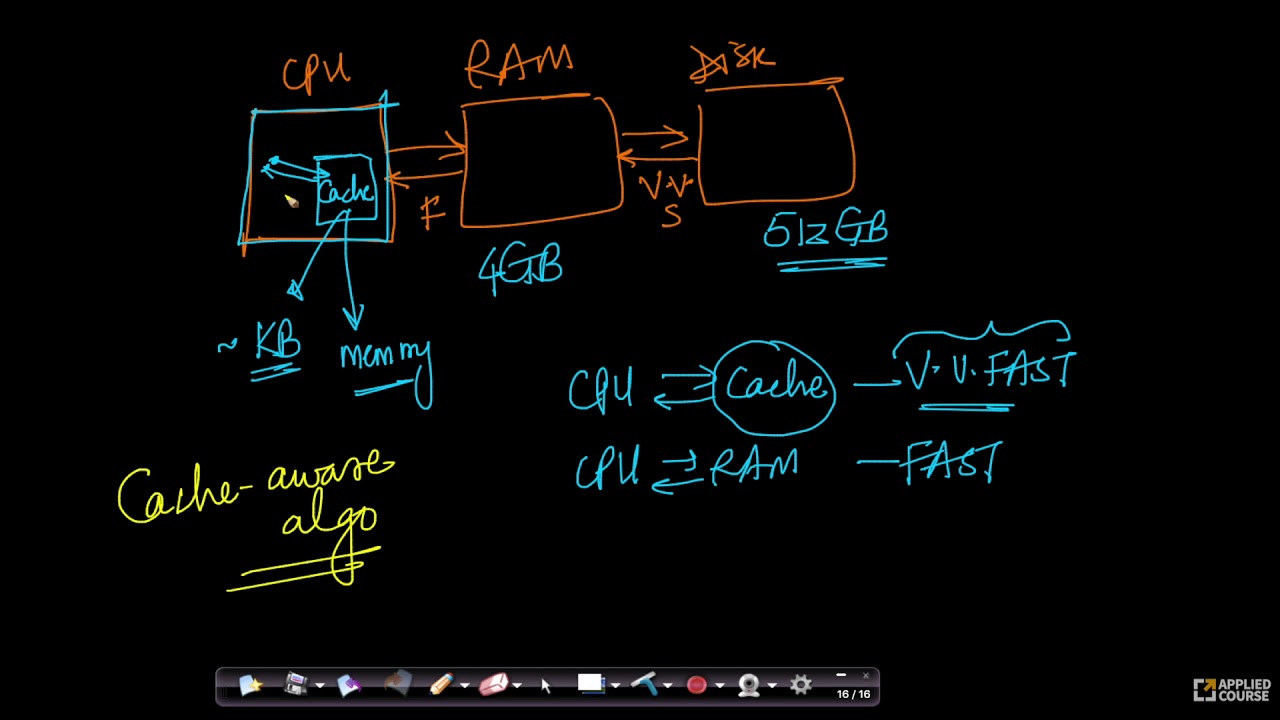 CPU
RAM
DISK
Cache
F
V.V.
S
4GB
512GB
~ KB
memory
CPU Cache — V.V.FAST
CPU RAM — FAST
Cache-aware
algo
16 / 16
APPLIED
COURSE